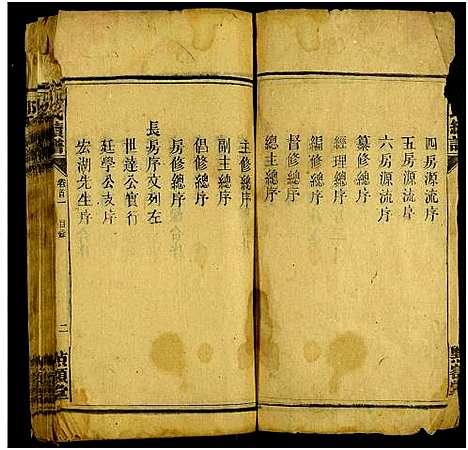 四房源流序
五房源流序
六房源流序
纂修總序
經理總序
編修總序
督修總序
總主總序
主修總序
副主總序
倡修總序
房修總序
長房序文列左
世達公實行
廷學公支序
宏湖先生序
卷首
目錄
二